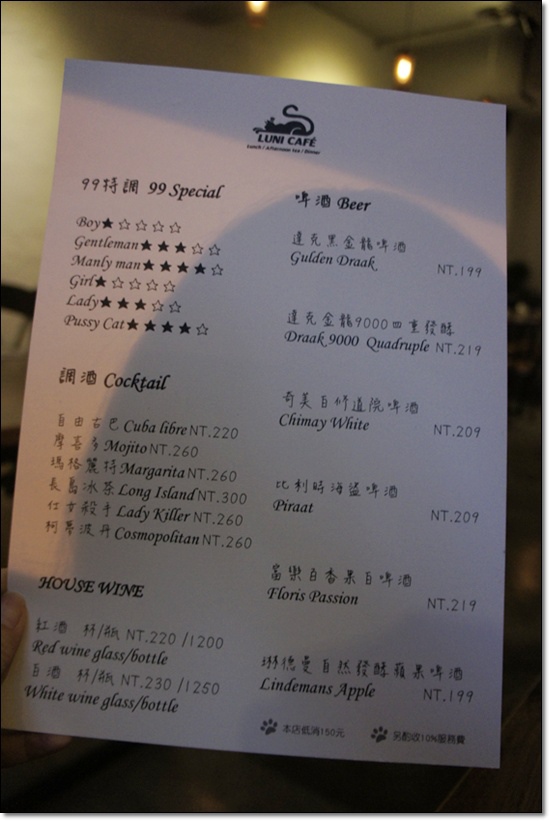 LUNI CAFÉ
Lunch / Afternoon tea / Dinner
99特調 99 Special
Boy★☆☆☆☆
Gentleman★★★☆☆
Manly man★★★★☆
Girl★☆☆☆☆
Lady★★★☆☆
Pussy Cat★★★★☆
調酒 Cocktail
自由古巴 Cuba libre NT.220
摩喜多 Mojito NT.260
瑪格麗特 Margarita NT.260
長島冰茶 Long Island NT.300
仕女殺手 Lady Killer NT.260
柯夢波丹 Cosmopolitan NT.260
HOUSE WINE
紅酒 杯/瓶 NT.220 /1200
Red wine glass/bottle
白酒 杯/瓶 NT.230 /1250
White wine glass/bottle
啤酒 Beer
達克黑金龍啤酒
Gulden Draak
NT.199
達克金龍9000四重發酵
Draak 9000 Quadruple NT.219
奇美白修道院啤酒
Chimay White
NT.209
比利時海盜啤酒
Piraat
NT.209
富樂百香果白啤酒
Floris Passion
NT.219
琳德曼自然發酵蘋果啤酒
Lindemans Apple
NT.199
本店低消150元 另酌收10%服務費